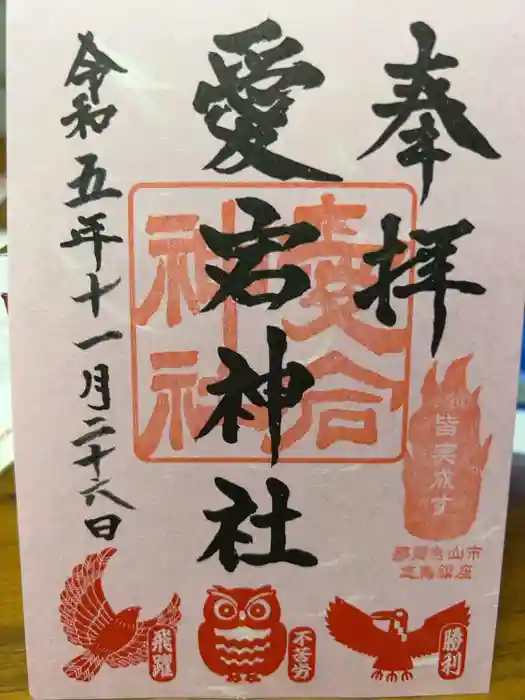 奉拝
愛宕神社
令和五年十一月二十六日
愛宕
神社
皆実成す
那須烏山市
飛躍
不苦労
勝利